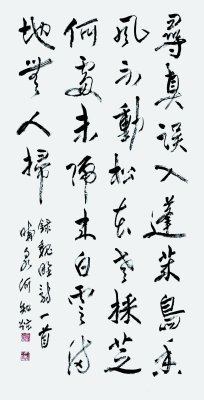 尋真誤入蓬萊島香
風不動松花老採芝
何處未歸來白雲滿
地無人掃
錄魏野詩一首
泉何